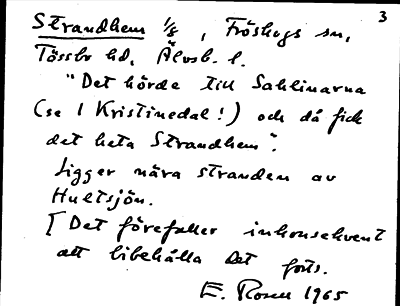 3
Strandhem 1/8, Fröskogs sn,
Tössbo hd, Älvsb. l.
"Det hörde till Sahlinarna
(se 1 Kristinedal!) och då fick
det heta Strandhem".
Ligger nära stranden av
Hultsjön.
[ Det förefaller inkonsekvent
att bibehålla det forts.
E. Rosen 1965